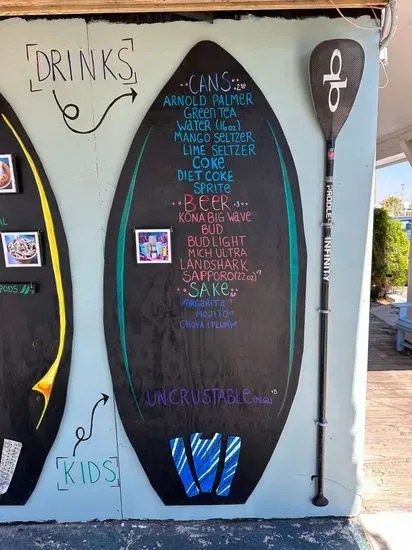 DRINKS
CANS 2.50
ARNOLD PALMER
GREEN TEA
WATER (16oz)
MANGO SELTZER
LIME SELTZER
COKE
DIET COKE
SPRITE
BEER
KONA BIG WAVE
BUD
BUD LIGHT
MICH ULTRA
LANDSHARK
SAPPORO (22oz)
SAKE
MARGARITA
MOJITO
CHOYA (PLUM)
UNCRUSTABLE
KIDS
PODS
PADDLE
INFINITY